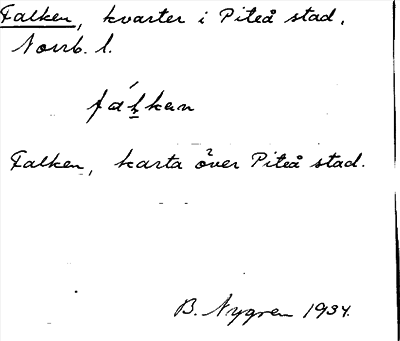 Falken, kvarter i Piteå stad,
Norrb. l.
fálkan
Falken, karta över Piteå stad.
B. Nygren 1934.